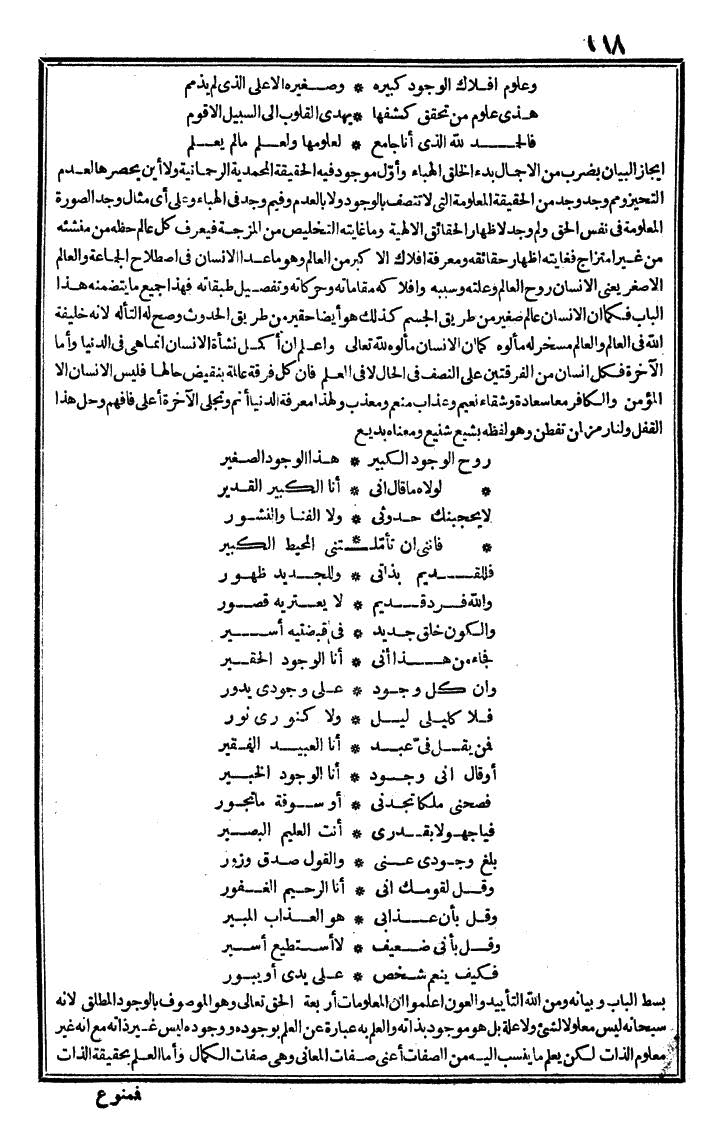 ١١٨
وعلوم افلاك الوجود كبيره * وصغيره الاعلى الذى لم يذمم
هذى علوم من تحقق كشفها * يهدى القلوب الى السبيل الاقوم
فالحمد لله الذى أنا جامع * لعلومها ولعلم مالم يعلم
ايجاز البيان بضرب من الاجمال بدء الخلق الهباء وأول موجود فيه الحقيقة المحمدية الرحمانية ولا أين يحصرها لعدم
التحيز ومم وجد وجد من الحقيقة المعلومة التى لا تتصف بالوجود ولا بالعدم وفيم وجد فى الهباء وعلى أى مثال وجد الصورة
المعلومة فى نفس الحق ولم وجد لاظهار الحقائق الالهية وماغايته التخليص من المزجة فيعرف كل عالم حظه من منشئه
من غير امتزاج فغايته اظهار حقائقه ومعرفة افلاك الاكبر من العالم وهو ماعدا الانسان فى اصطلاح الجماعة والعالم
الاصغر يعنى الانسان روح العالم وعلته وسببه وافلاكه مقاماته وحركاته وتفصيل طبقاته فهذا جميع ما يتضمنه هذا
الباب فكما ان الانسان عالم صغير من طريق الجسم كذلك هو أيضا حقير من طريق الحدوث وصح له التأله لانه خليفة
الله فى العالم والعالم مسخر له مألوه كما ان الانسان مألوه لله تعالى واعلم ان أكمل نشأة الانسان انما هى فى الدنيا وأما
الآخرة فكل انسان من الفرقتين على النصف فى الحال لا فى العلم فان كل فرقة عالمة بنقيض حالها فليس الانسان الا
المؤمن والكافر معا سعادة وشقاء نعيم وعذاب منعم ومعذب ولهذا معرفة الدنيا أتم وتجلى الآخرة أعلى فافهم وحل هذا
القفل ولنا رمز لمن تفطن وهو لفظه بشيع شنيع ومعناه بديع
روح الوجود الكبير * هذا الوجود الصغير
* لولاه ما قال انى * أنا الكبير القدير
لا يحجبنك حدوثى * ولا الفنا والنشور
* فاننى ان تأملتنى * المحيط الكبير
فللقديم بذاتى * وللجديد ظهور
والله فرد قديم * لا يعتريه قصور
والكون خلق جديد * فى قبضتيه أسير
فجاء من هذا أنى * أنا الوجود الحقير
وان كل وجود * على وجودى يدور
فلا كليلى ليل * ولا كنورى نور
فمن يقل فىّ عبد * أنا العبيد الفقير
أو قال انى وجود * أنا الوجود الخبير
فصحنى ملكا تجدنى * أو سوقة ما تجور
فياجهولا بقدرى * أنت العليم البصير
بلغ وجودى عنى * والقول صدق وزور
وقل لقومك انى * أنا الرحيم الغفور
وقل بأن عذابى * هو العذاب المبير
وقل بأنى ضعيف * لا أستطيع أسير
فكيف ينعم شخص * على يدى أو يبور
بسط الباب وبيانه ومن الله التأييد والعون اعلموا ان المعلومات أربعة الحق تعالى وهو الموصوف بالوجود المطلق لانه
سبحانه ليس معلولا لشئ ولا علة بل هو موجود بذاته والعلم به عبارة عن العلم بوجوده ووجوده ليس غير ذاته مع انه غير
معلوم الذات لكن يعلم ما ينسب اليه من الصفات أعنى صفات المعانى وهى صفات الكمال وأما العلم بحقيقة الذات
فمنوع